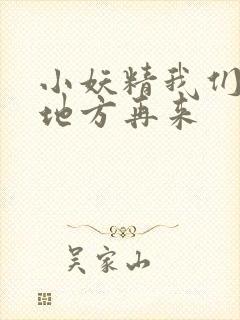 小妖精我们
地方再来
吴家山